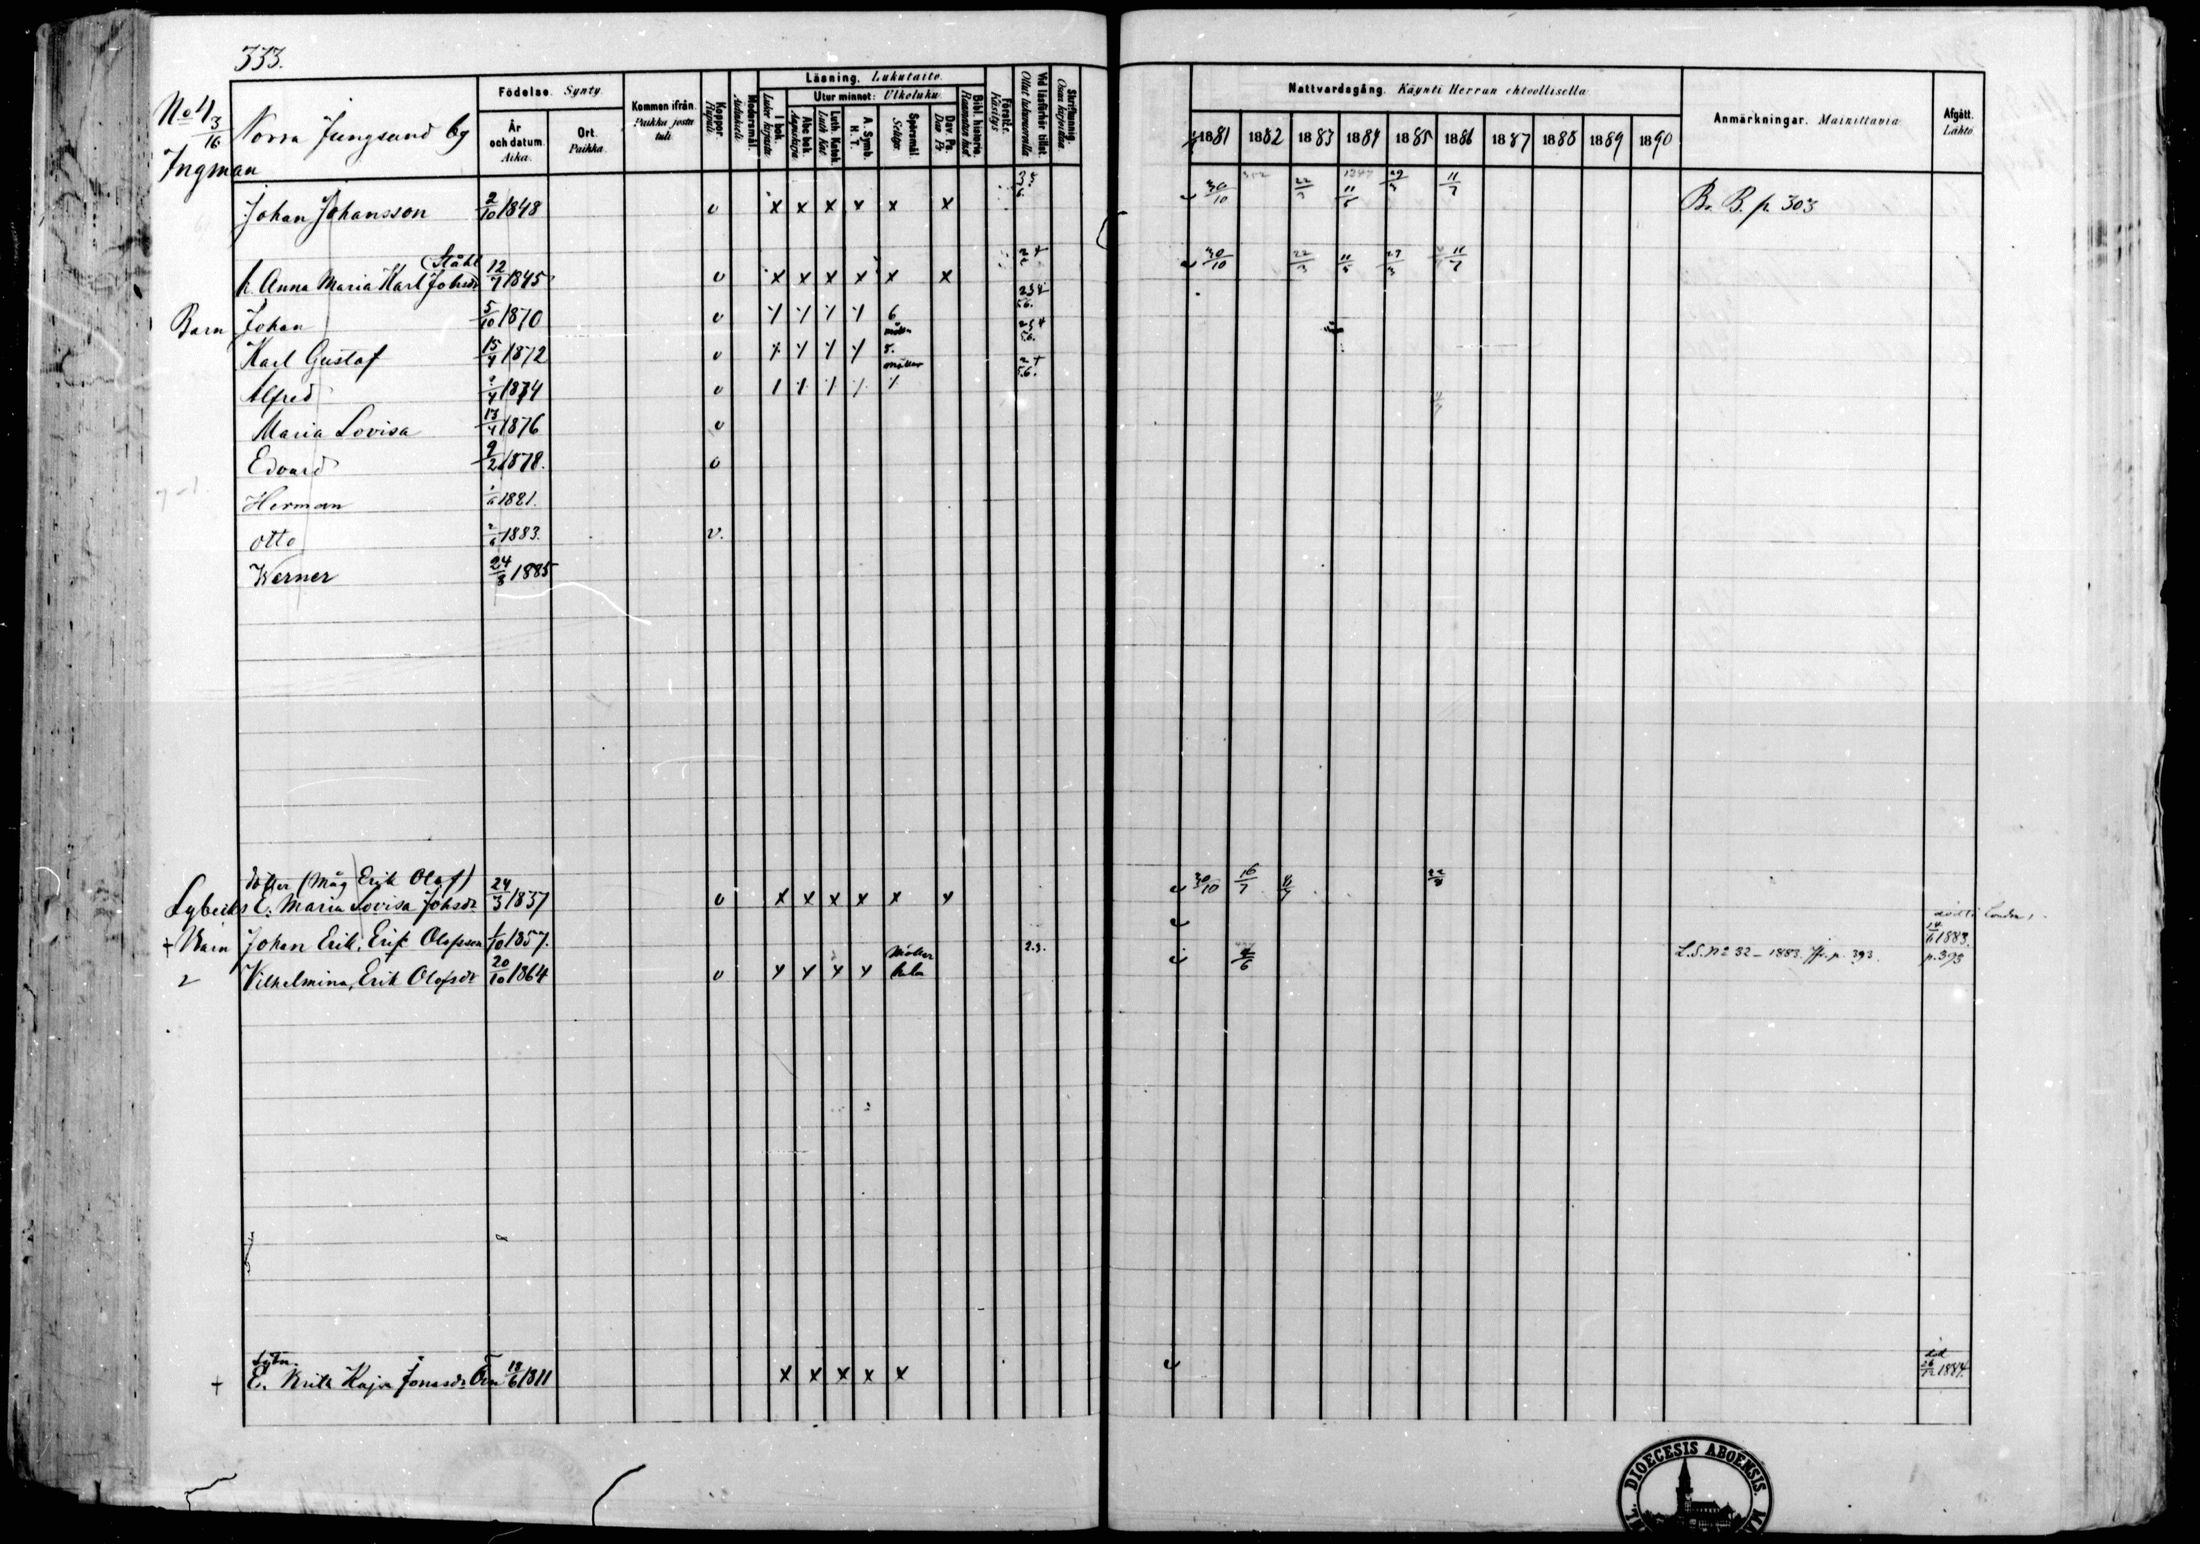 333.
No 4
3/16
Ingman
Norra Jungsund by
Födelse. Synty.
År och datum. Aika.
Ort. Paikka.
Kommen ifrån. Paikka josta tuli.
Koppor. Rupuli
Modersmål. Äidinkieli
Läsning. Lukutaito.
I bok. Luku kirjasta
Utur minnet: Ulkoluku.
Abc bok. Aapiskirja
Luth. Katek. Luth Kat
A. Symb. H. T.
Spörsmål Selitys
Dav. Ps. Dav Ps
Bibl. historia. Raamatun hist
Förstår. Käsitys
Vid läsförhör tillst. Ollut lukukunnilla
Skriftskolning.
Nattvardsgång. Käynti Herran ehtoollisella
1881 1882 1883 1884 1885 1886 1887 1888 1889 1890
Anmärkningar. Mainittavia.
Afgått. Lähtö
Johan Johansson 2/10 1848 v x x x x x x 30/10 22/3 11/5 29/3 11/7 B. B. p. 303
Ståhl
h. Anna Maria Karl Johsdr 12/7 1845 v x x x x x x 30/10 22/3 11/5 29/3 11/7
Barn Johan 5/10 1870 v 6
Karl Gustaf 15/4 1872 v
Alfred 1874 v
Maria Lovisa 13/4 1876 v
Edvard 9/2 1878. v
Herman 1881.
Otto 1883. v.
Werner 24/3 1885
dotter (Måg Erik Olof)
Lybecks E. Maria Lovisa Johsdr. 24/3 1837 v x x x x x x 30/10 16/7
+ Barn Johan Erik, Erik Olofsson 1/10 1857. 2.3. död i London 1883.
2 Vilhelmina, Erik Olofsdr 20/10 1864 v 4/6 L.S. No 32 – 1883. p. 393. p. 393
+ E. Brita Kajsa Jonasdr. 18/6 1811 x x x x x död 1884.
DIOECESIS ABOENSIS.